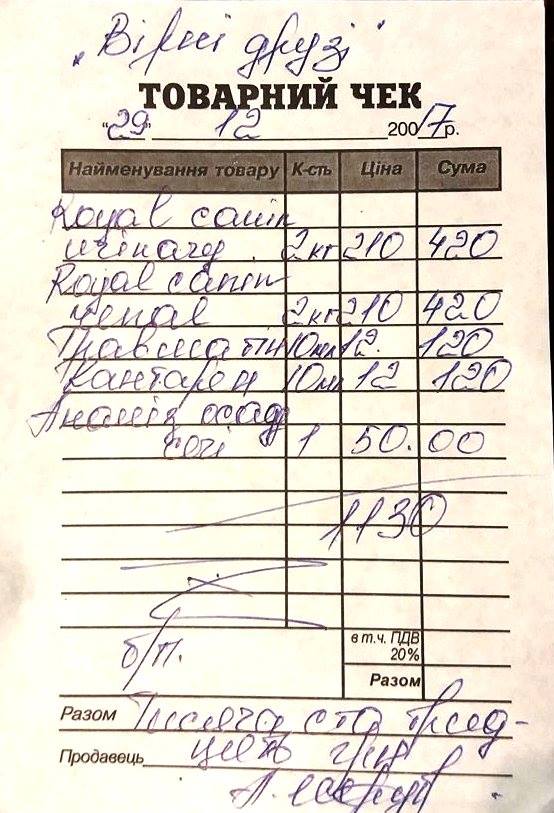 "Вірні друзі"
ТОВАРНИЙ ЧЕК
"29" 12 2007р.
Найменування товару К-сть Ціна Сума
Royal canin
urinary 2кг 210 420
Royal canin
renal 2кг 210 420
Травматин 10мл 12. 120
Кантарен 10мл 12 120
Аналіз осаду
сечі 1 50.00
1130
б/п.
в т.ч. ПДВ
20%
Разом
Разом Тисяча сто трид-
Продавець цять грн